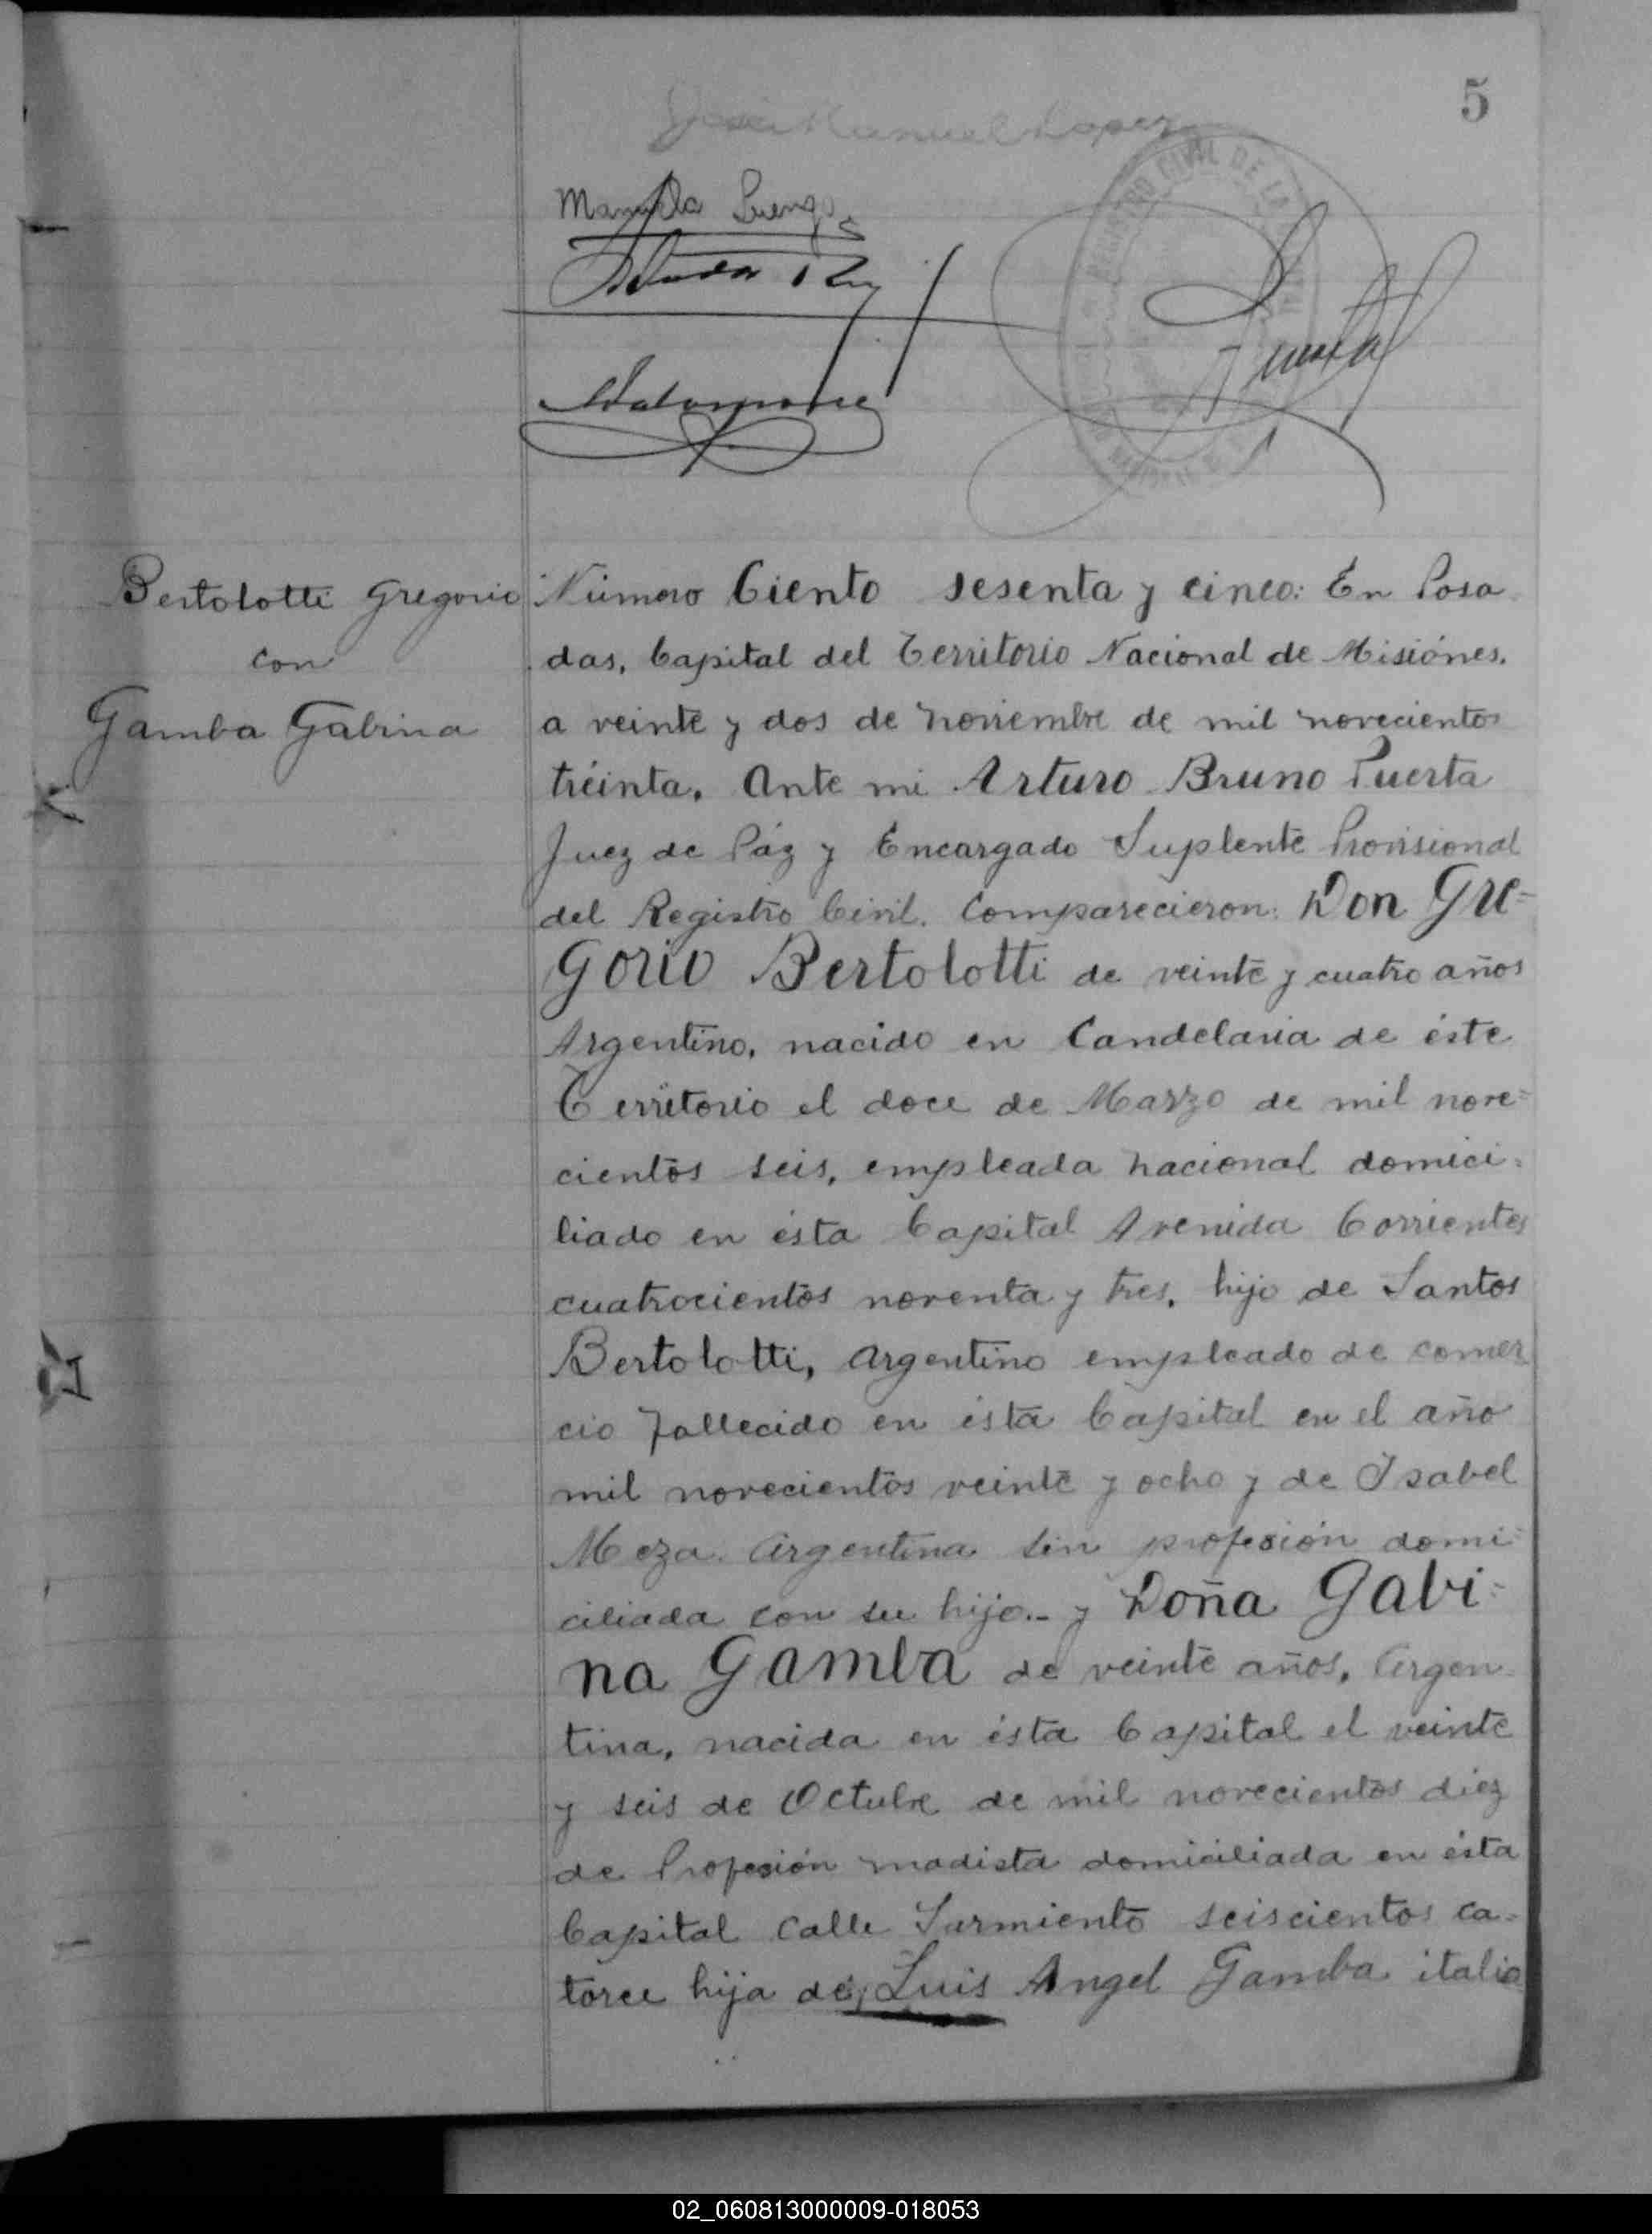 5
José Manuel Lopez
Manuela
REGISTRO CIVIL DE LA
Bertolotti Gregorio
con
Gamba Gabina
Número Ciento sesenta y cinco: En Posa
das, Capital del Territorio Nacional de Misiónes,
a veinte y dos de noviembre de mil novecientos
tréinta. Ante mi Arturo Bruno Puerta
Juez de Páz y Encargado Suplente Provisional
del Registro Civil. Comparecieron: Don Gre=
gorio Bertolotti de veinte y cuatro años
Argentino, nacido en Candelaria de éste
Territorio el doce de Marzo de mil nove=
cientos seis, empleada nacional domici=
liado en ésta Capital Avenida Corrientes
cuatrocientos noventa y tres, hijo de Santos
Bertolotti, Argentino empleado de comer
cio fallecido en ésta Capital en el año
mil novecientos veinte y ocho y de Isabel
Meza. Argentina sin profesión domi=
ciliada con su hijo.- y Doña Gabi=
na Gamba de veinte años, Argen
tina, nacida en ésta Capital el veinte
y seis de Octubre de mil novecientos diez
de Profesión modista domiciliada en ésta
Capital calle Sarmiento seiscientos ca=
torce hija de Luis Angel Gamba italia
02_060813000009-018053